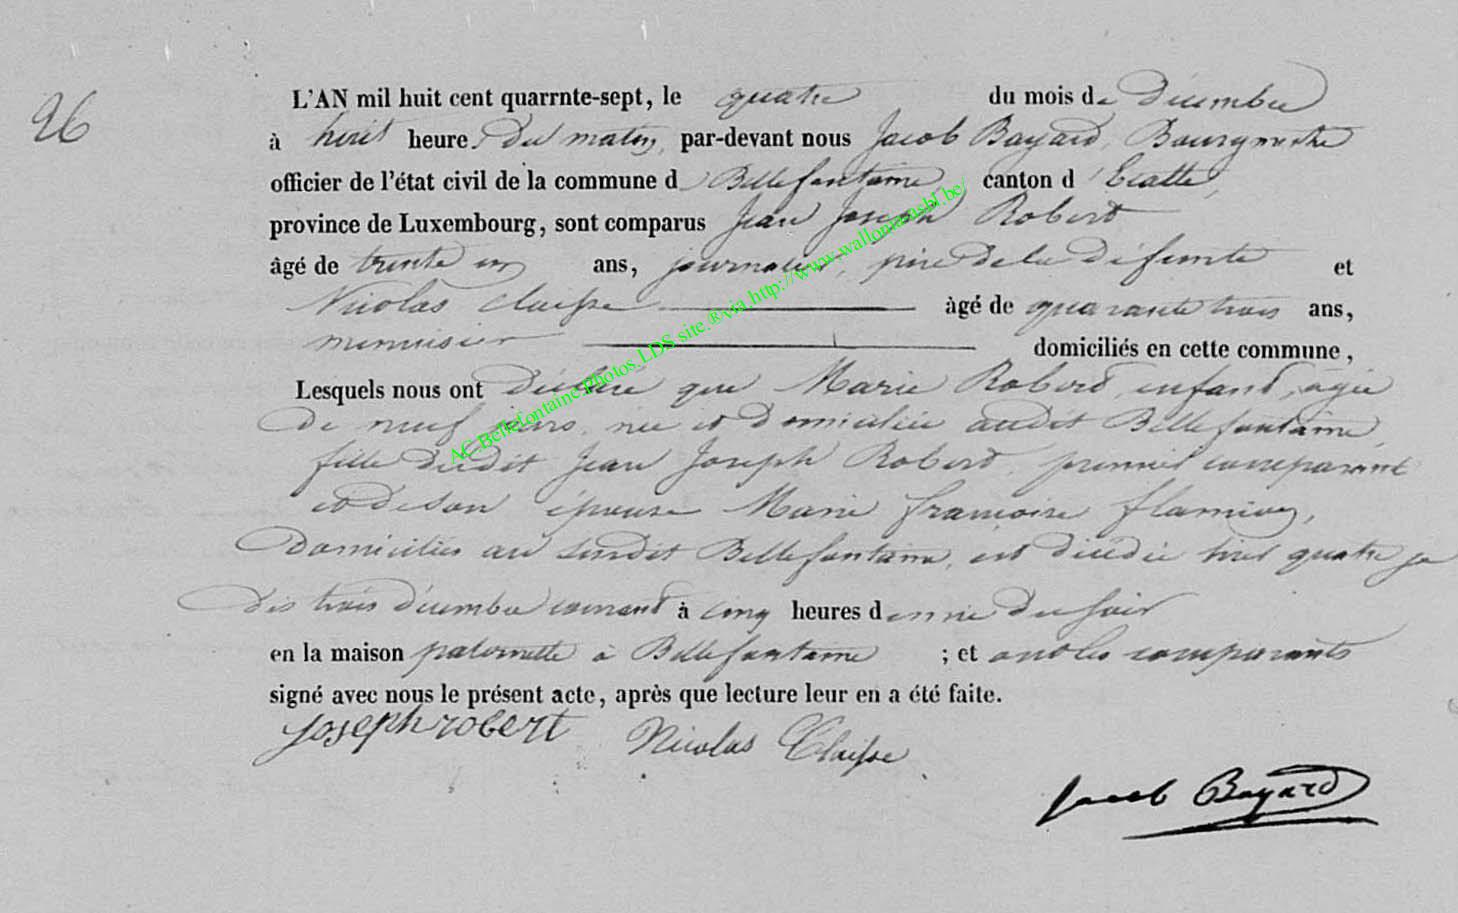 26
L'AN mil huit cent quarrnte-sept, le quatre du mois de décembre
à huit heures du matin, par-devant nous Jacob Bayard, Bourgmestre
officier de l'état civil de la commune d Bellefontaine, canton d'Etalle,
province de Luxembourg, sont comparus Jean Joseph Robert
âgé de trente un ans, journalier, père de la défunte et
Nicolas Claisse âgé de quarante trois ans,
menuisier domiciliés en cette commune,
Lesquels nous ont déclaré que Marie Robert, enfant, agée
de neuf jours, née et domiciliée audit Bellefontaine,
fille dudit Jean Joseph Robert, premier comparant
et de son épouse Marie françoise flamion,
domiciliés au susdit Bellefontaine, est décédée
trois décembre courant à cinq heures du soir
en la maison paternelle à Bellefontaine ; et ont les comparants
signé avec nous le présent acte, après que lecture leur en a été faite.
joseph robert Nicolas Claisse
Jacob Bayard
AC.Bellefontaine.Photos_LDS site.®via.http://www.wallonia.asbl.be/